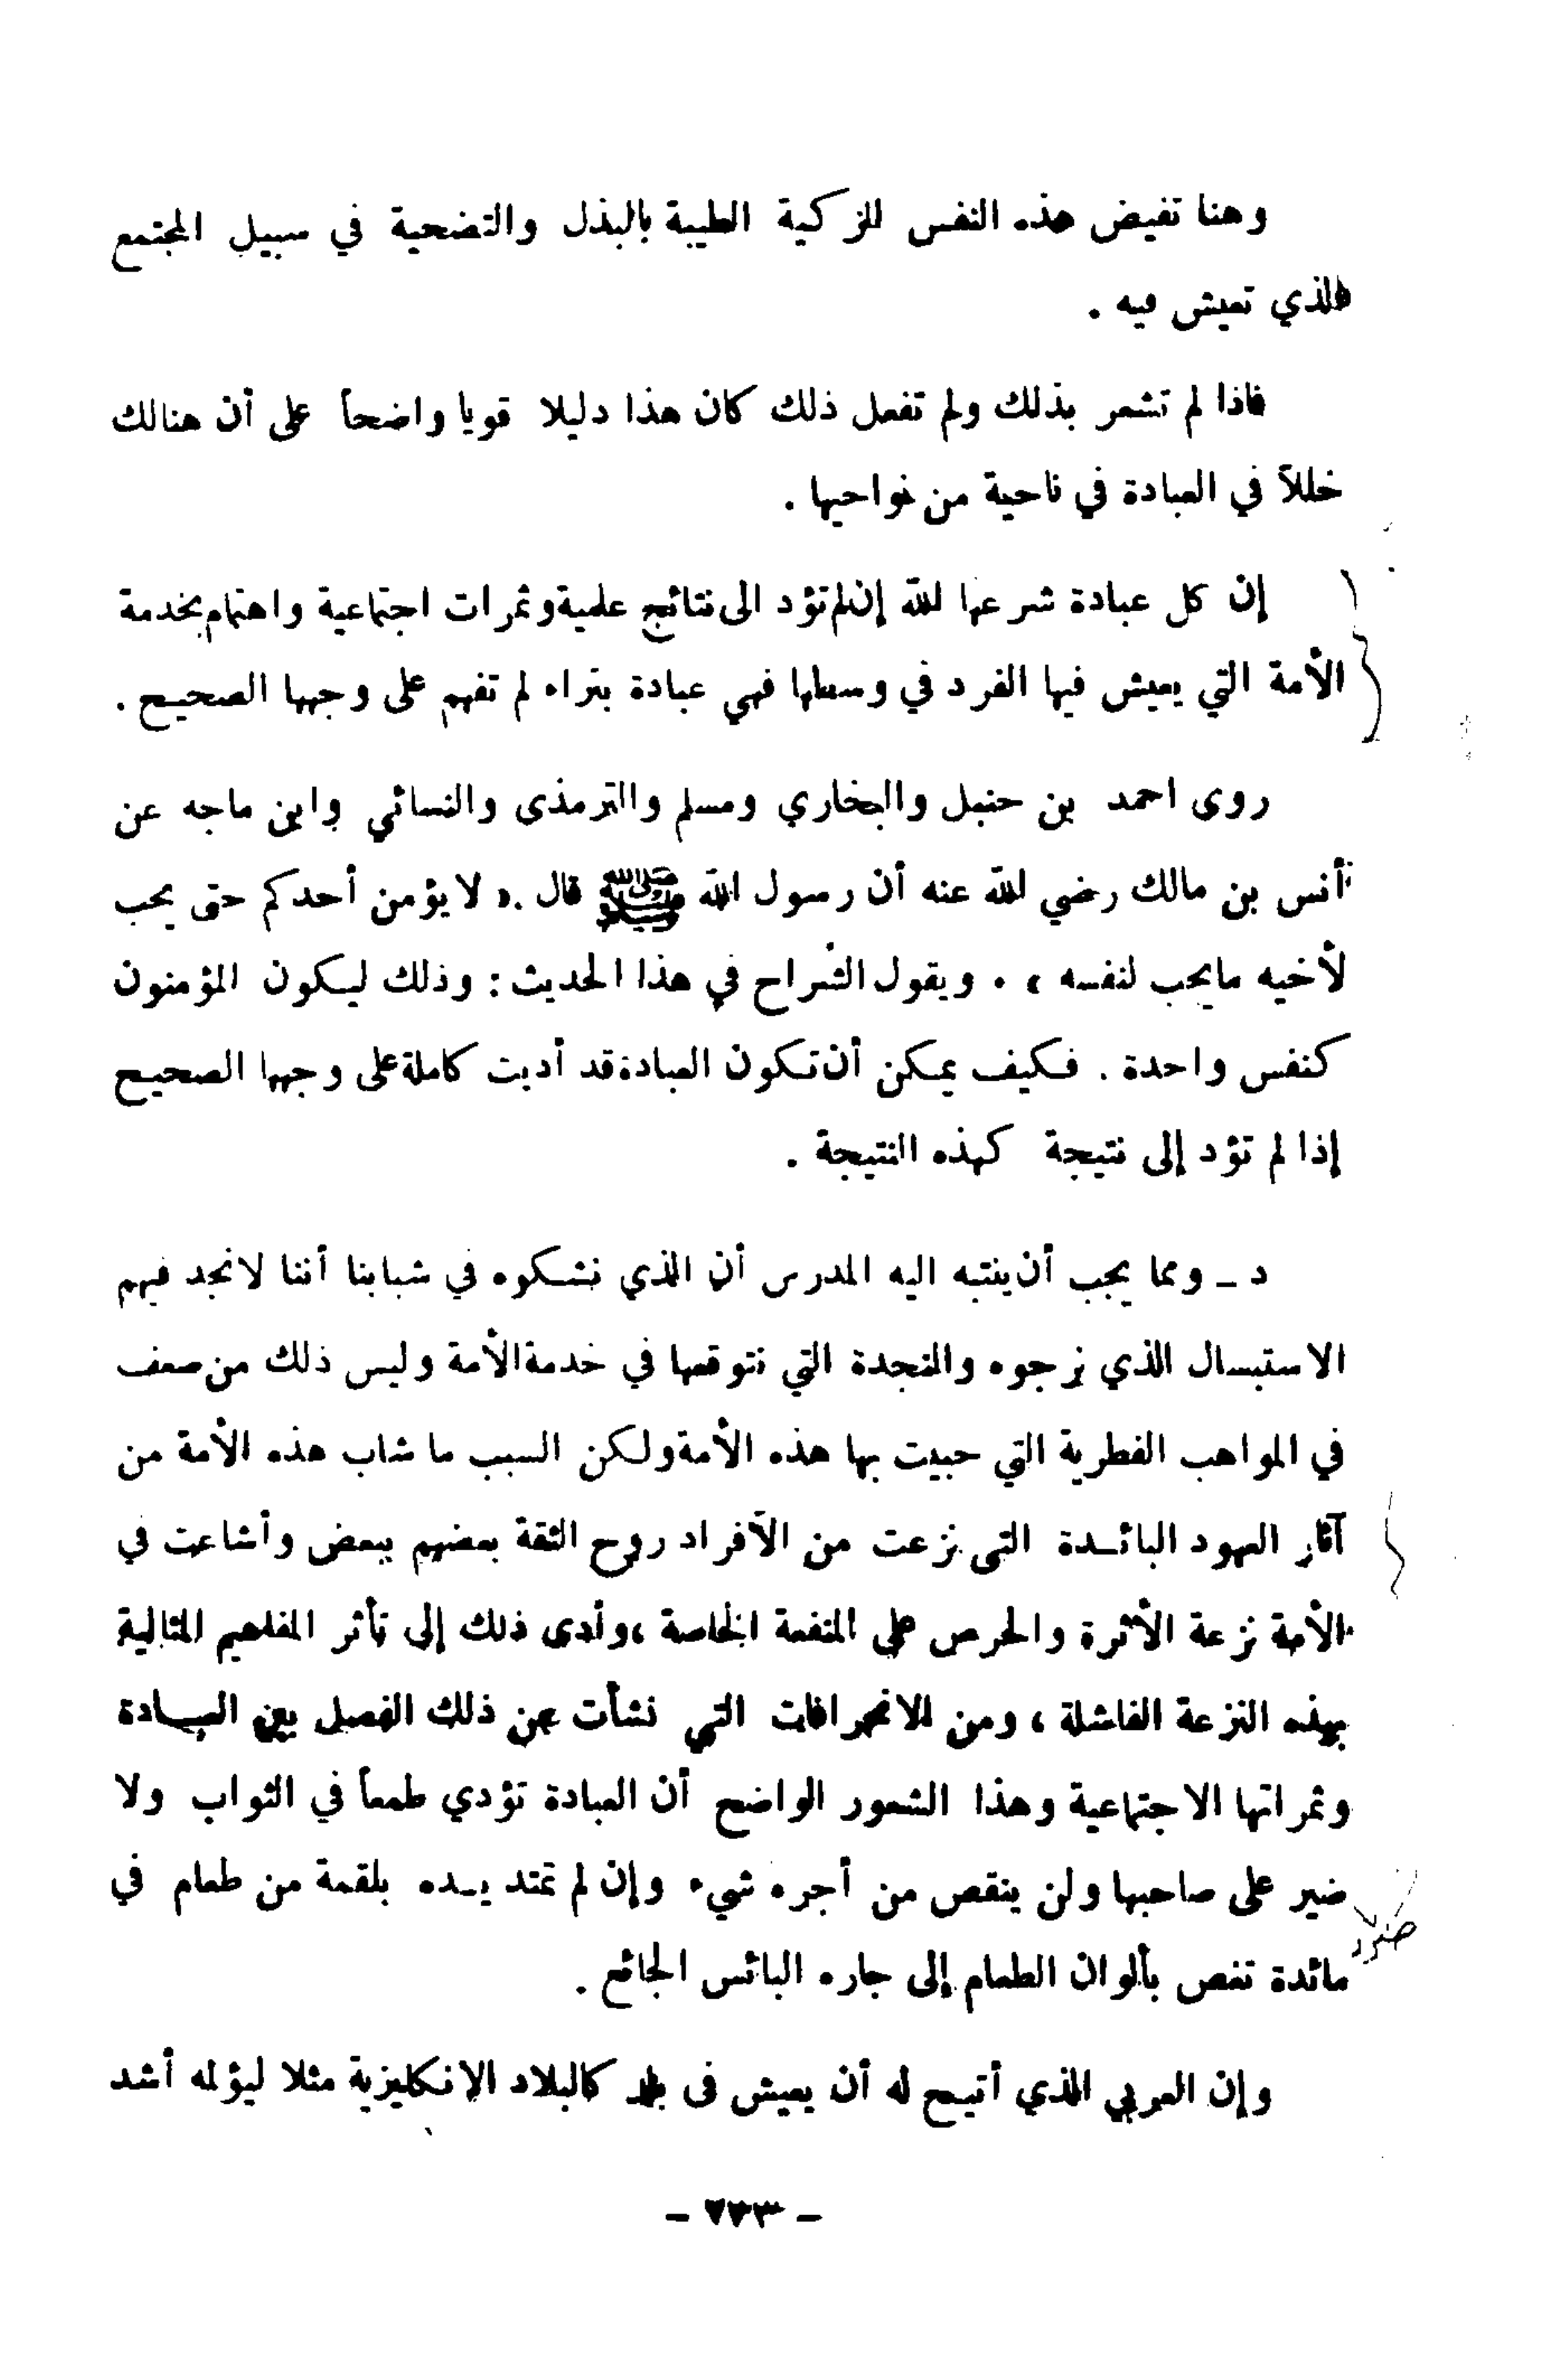 وهنا تفيض هذه النفس الزكية الطيبة بالبذل والتضحية في سبيل المجتمع
الذي تعيش فيه .
فاذا لم تشعر بذلك ولم تفعل ذلك كان هذا دليلا قويا واضحاً على أن هنالك
خللاً في العبادة في ناحية من نواحيها .
إن كل عبادة شرعها الله إن لم تؤد الى نتائج علمية وثمرات اجتماعية واهتمام بخدمة
الأمة التي يعيش فيها الفرد في وسطها فهي عبادة بتراء لم تفهم على وجهها الصحيح .
روى احمد بن حنبل والبخاري ومسلم والترمذى والنسائي وابن ماجه عن
أنس بن مالك رضي الله عنه أن رسول الله ﷺ قال « لا يؤمن أحدكم حتى يحب
لأخيه ما يحب لنفسه » . ويقول الشراح في هذا الحديث : وذلك ليكون المؤمنون
كنفس واحدة . فكيف يمكن أن تكون العبادة قد أديت كاملة على وجهها الصحيح
إذا لم تؤد إلى نتيجة كهذه النتيجة .
د - ومما يجب أن ينتبه اليه المدرس أن الذي نشكوه في شبابنا أننا لا نجد فيهم
الاستبسال الذي نرجوه والنجدة التي نتوقعها في خدمة الأمة وليس ذلك من ضعف
في المواهب الفطرية التي حبيت بها هذه الأمة ولكن السبب ما شاب هذه الأمة من
آثار العهود البائدة التى نزعت من الأفراد روح الثقة بعضهم ببعض وأشاعت في
الأمة نزعة الأثرة والحرص على المنفعة الخاصة ، وأدى ذلك إلى تأثر المفاهيم المثالية
بهذه النزعة الفاشلة ، ومن الانحرافات التي نشأت عن ذلك الفصل بين العبادة
وثمراتها الاجتماعية وهذا الشعور الواضح أن العبادة تؤدي طمعاً في الثواب ولا
ضير على صاحبها ولن ينقص من أجره شيء وإن لم تمتد يده بلقمة من طعام في
مائدة تغص بألوان الطعام إلى جاره البائس الجائع .
وإن العربي الذي أتيح له أن يعيش فى بلد كالبلاد الإنكليزية مثلا ليؤلمه أشد
- ٧٣٣ -